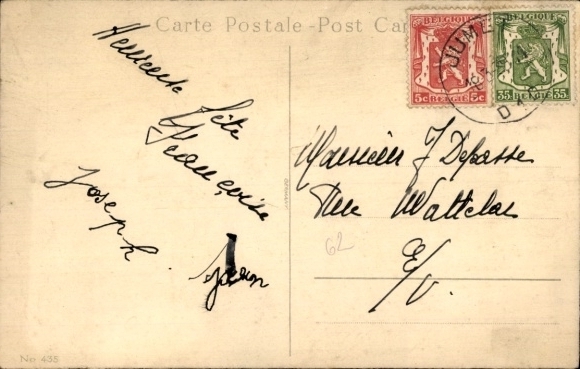 Carte Postale - Post Car
BELGIQUE
5c 5c
BELGIE
BELGIQUE
35 35
BELGIE
JUME
D
Heureuse fête
Françoise
Joseph.
Jean
Monsieur J Depasse
Rue Wattelar
E/V.
62
No 435